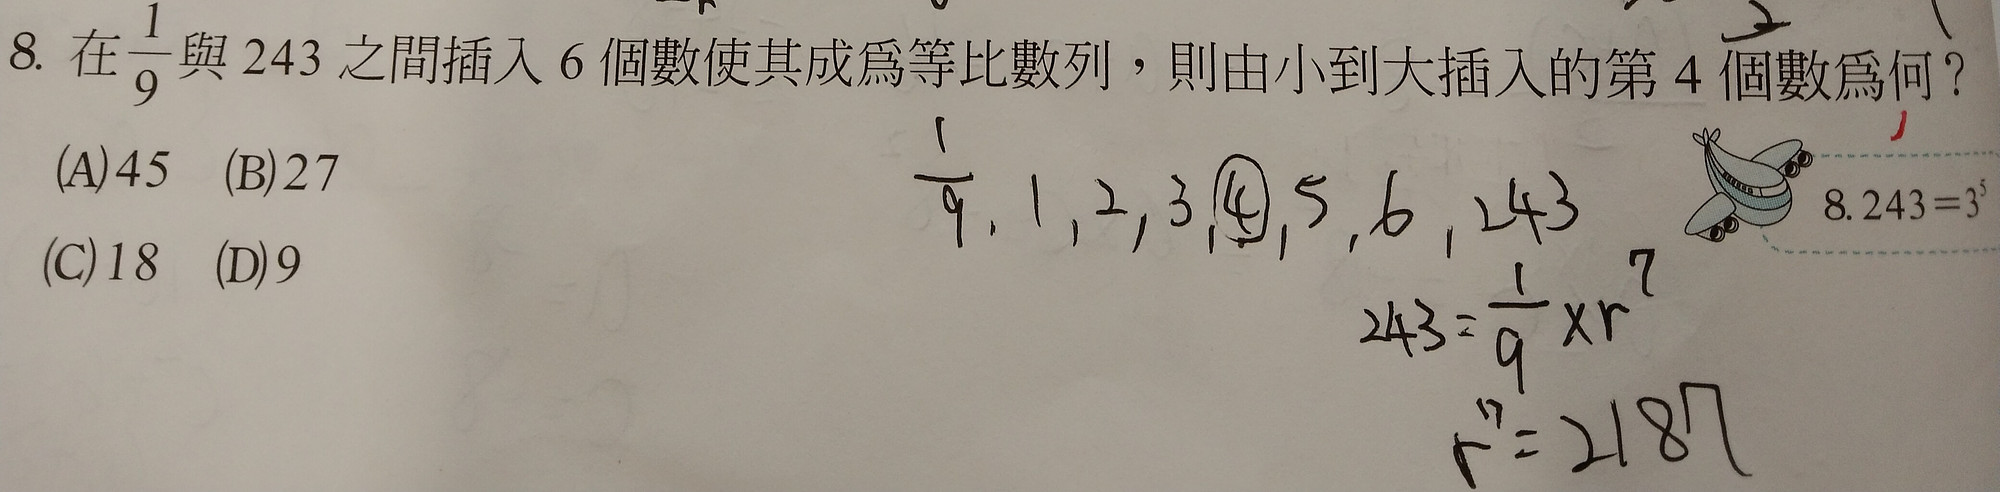 8. 在 1/9 與 243 之間插入 6 個數使其成爲等比數列，則由小到大插入的第 4 個數爲何？
(A)45 (B)27
(C)18 (D)9
1/9, 1, 2, 3, ④, 5, 6, 243
8. 243=3⁵
243 = 1/9 × r⁷
r⁷ = 2187